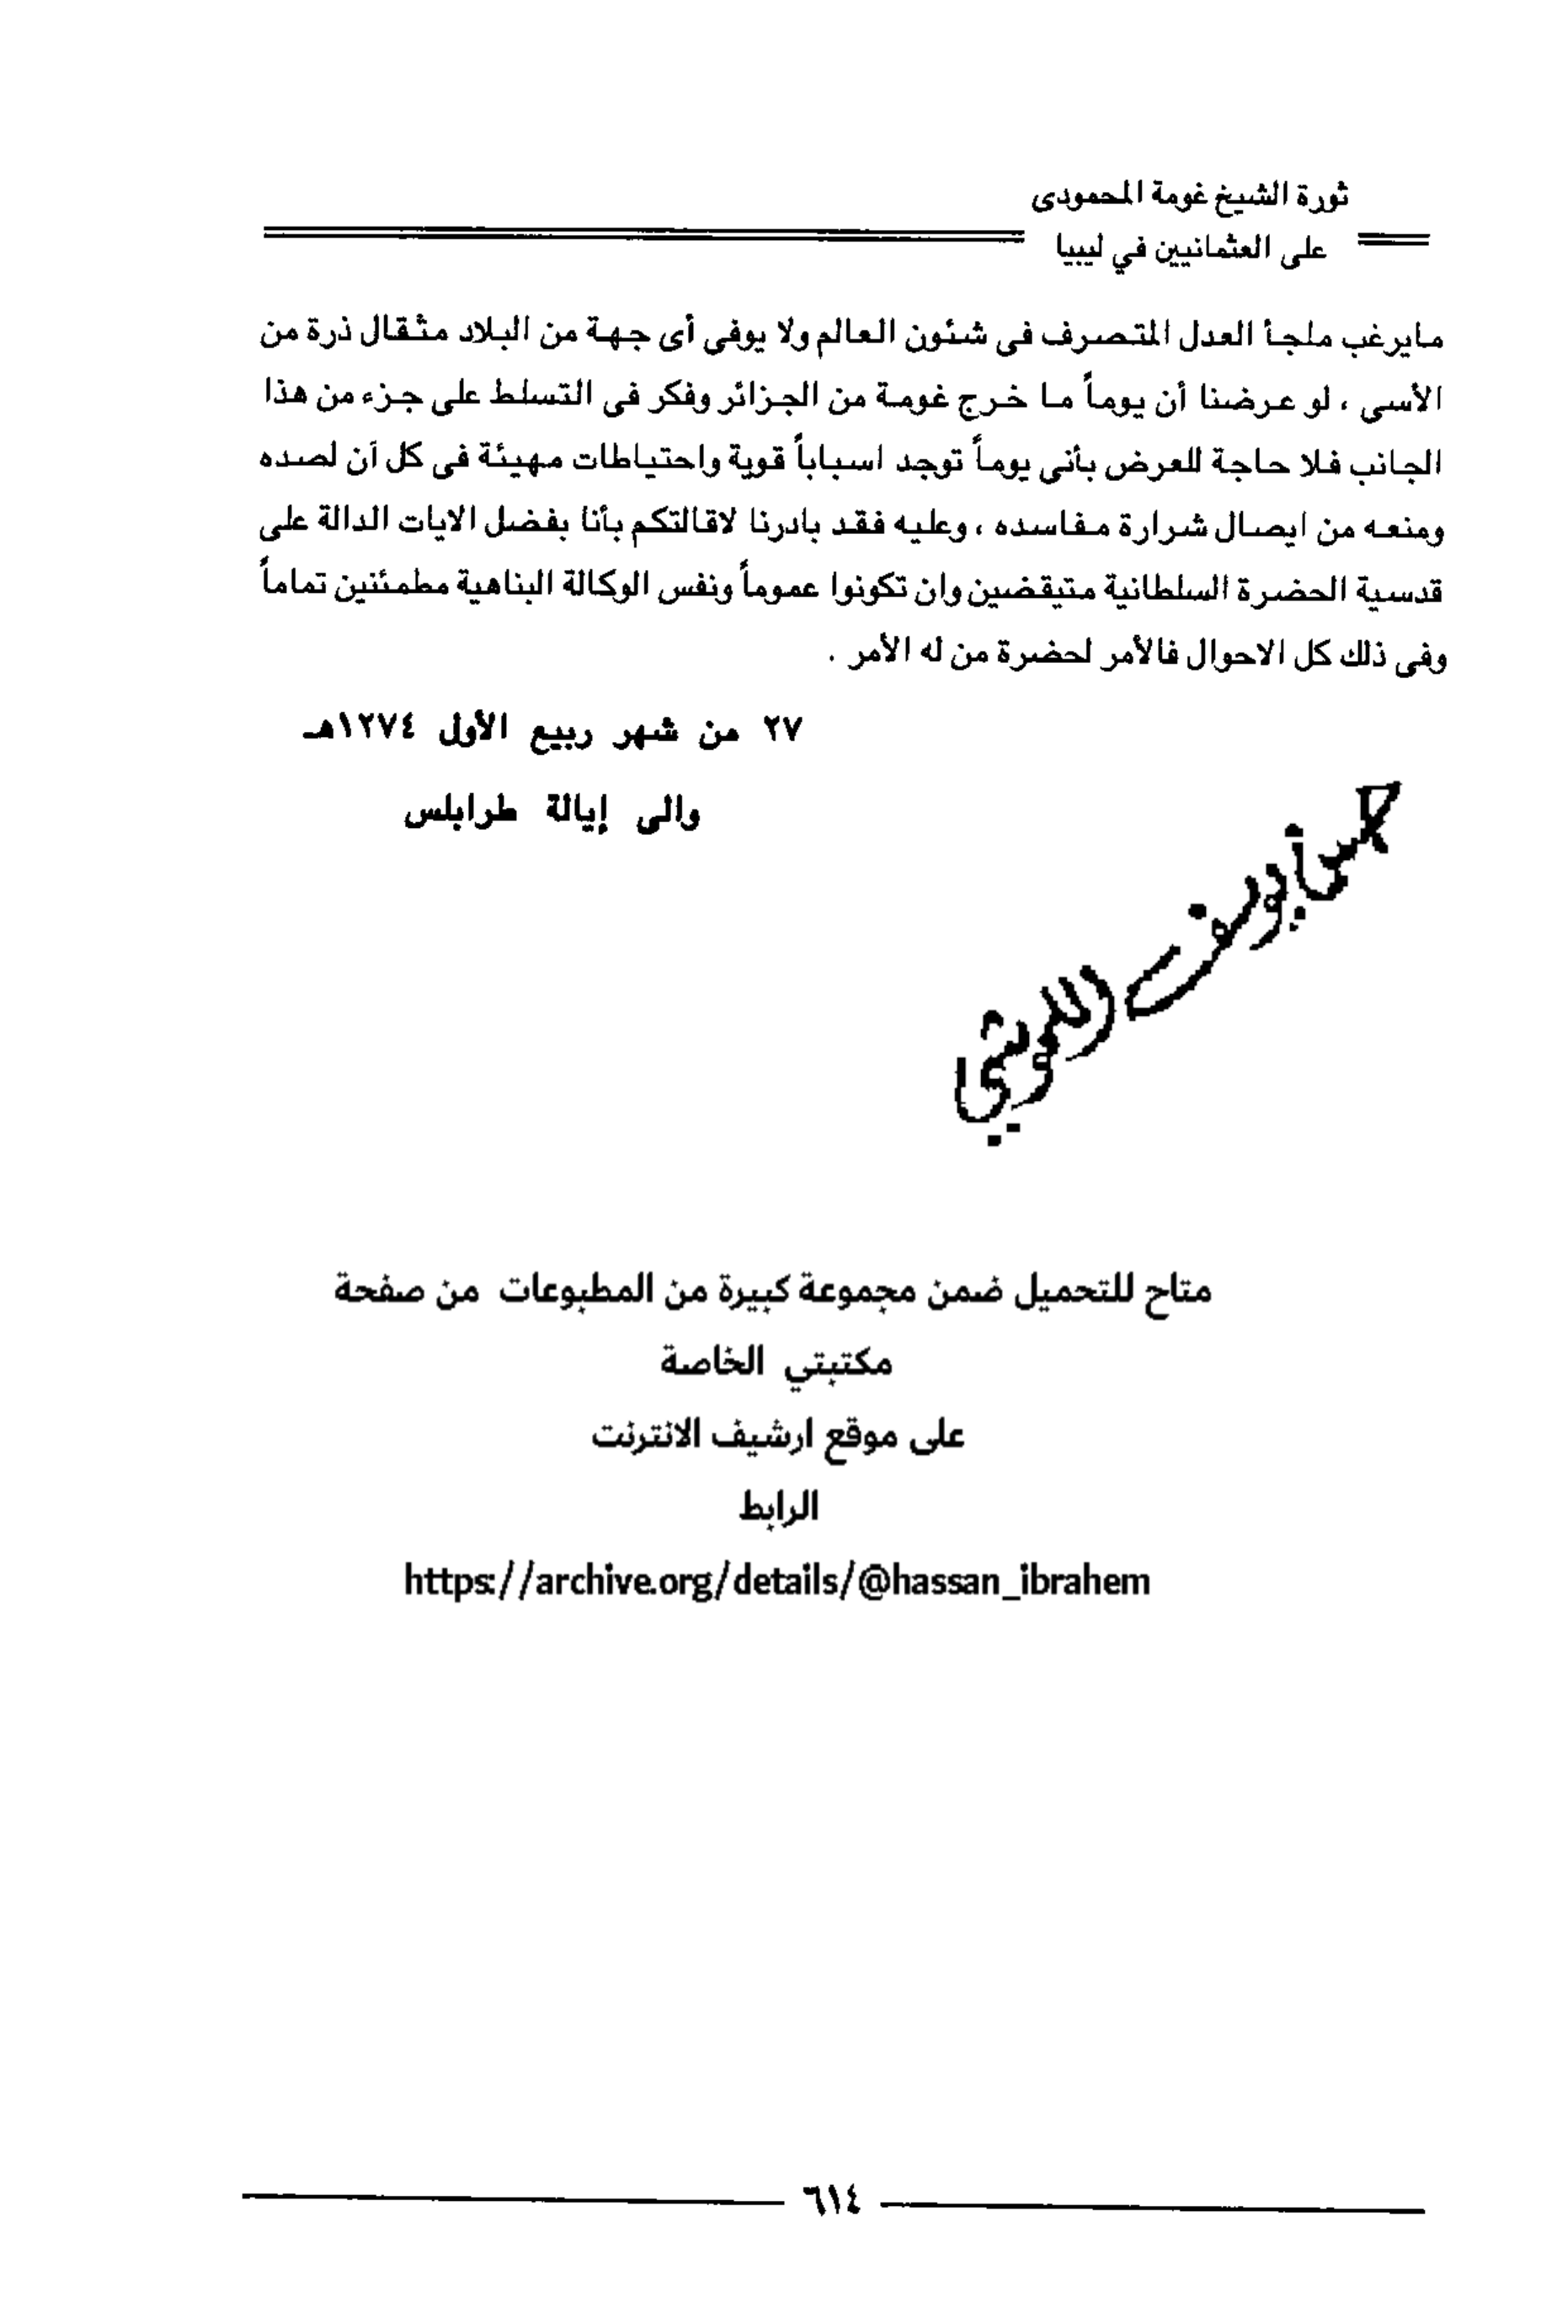 ثورة الشيخ غومة المحمودى
على العثمانيين في ليبيا
مايرغب ملجأ العدل المتصرف فى شئون العالم ولا يوفى أى جهة من البلاد مثقال ذرة من
الأسى ، لو عرضنا أن يوماً ما خرج غومة من الجزائر وفكر فى التسلط على جزء من هذا
الجانب فلا حاجة للعرض بأنى يوماً توجد اسباباً قوية واحتياطات مهيئة فى كل آن لصده
ومنعه من ايصال شرارة مفاسده ، وعليه فقد بادرنا لاقالتكم بأنا بفضل الايات الدالة على
قدسية الحضرة السلطانية متيقضين وان تكونوا عموماً ونفس الوكالة البناهية مطمئنين تماماً
وفى ذلك كل الاحوال فالأمر لحضرة من له الأمر .
٢٧ من شهر ربيع الأول ١٢٧٤هـ
والى إيالة طرابلس
متاح للتحميل ضمن مجموعة كبيرة من المطبوعات من صفحة
مكتبتي الخاصة
على موقع ارشيف الانترنت
الرابط
https://archive.org/details/@hassan_ibrahem
٦١٤